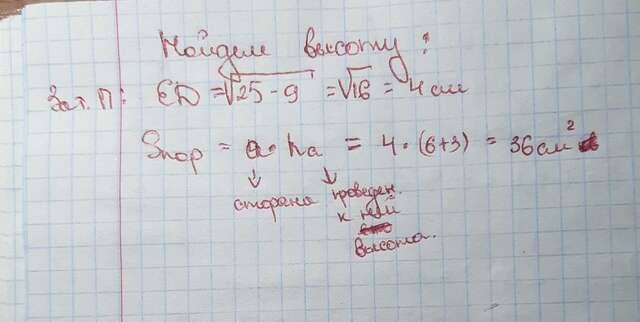 Найдем высоту:
За т. П: ED = √25 - 9 = √16 = 4 см
Sпар = a · ha = 4 · (6+3) = 36 см²
сторона проведен.
к ней
высота.